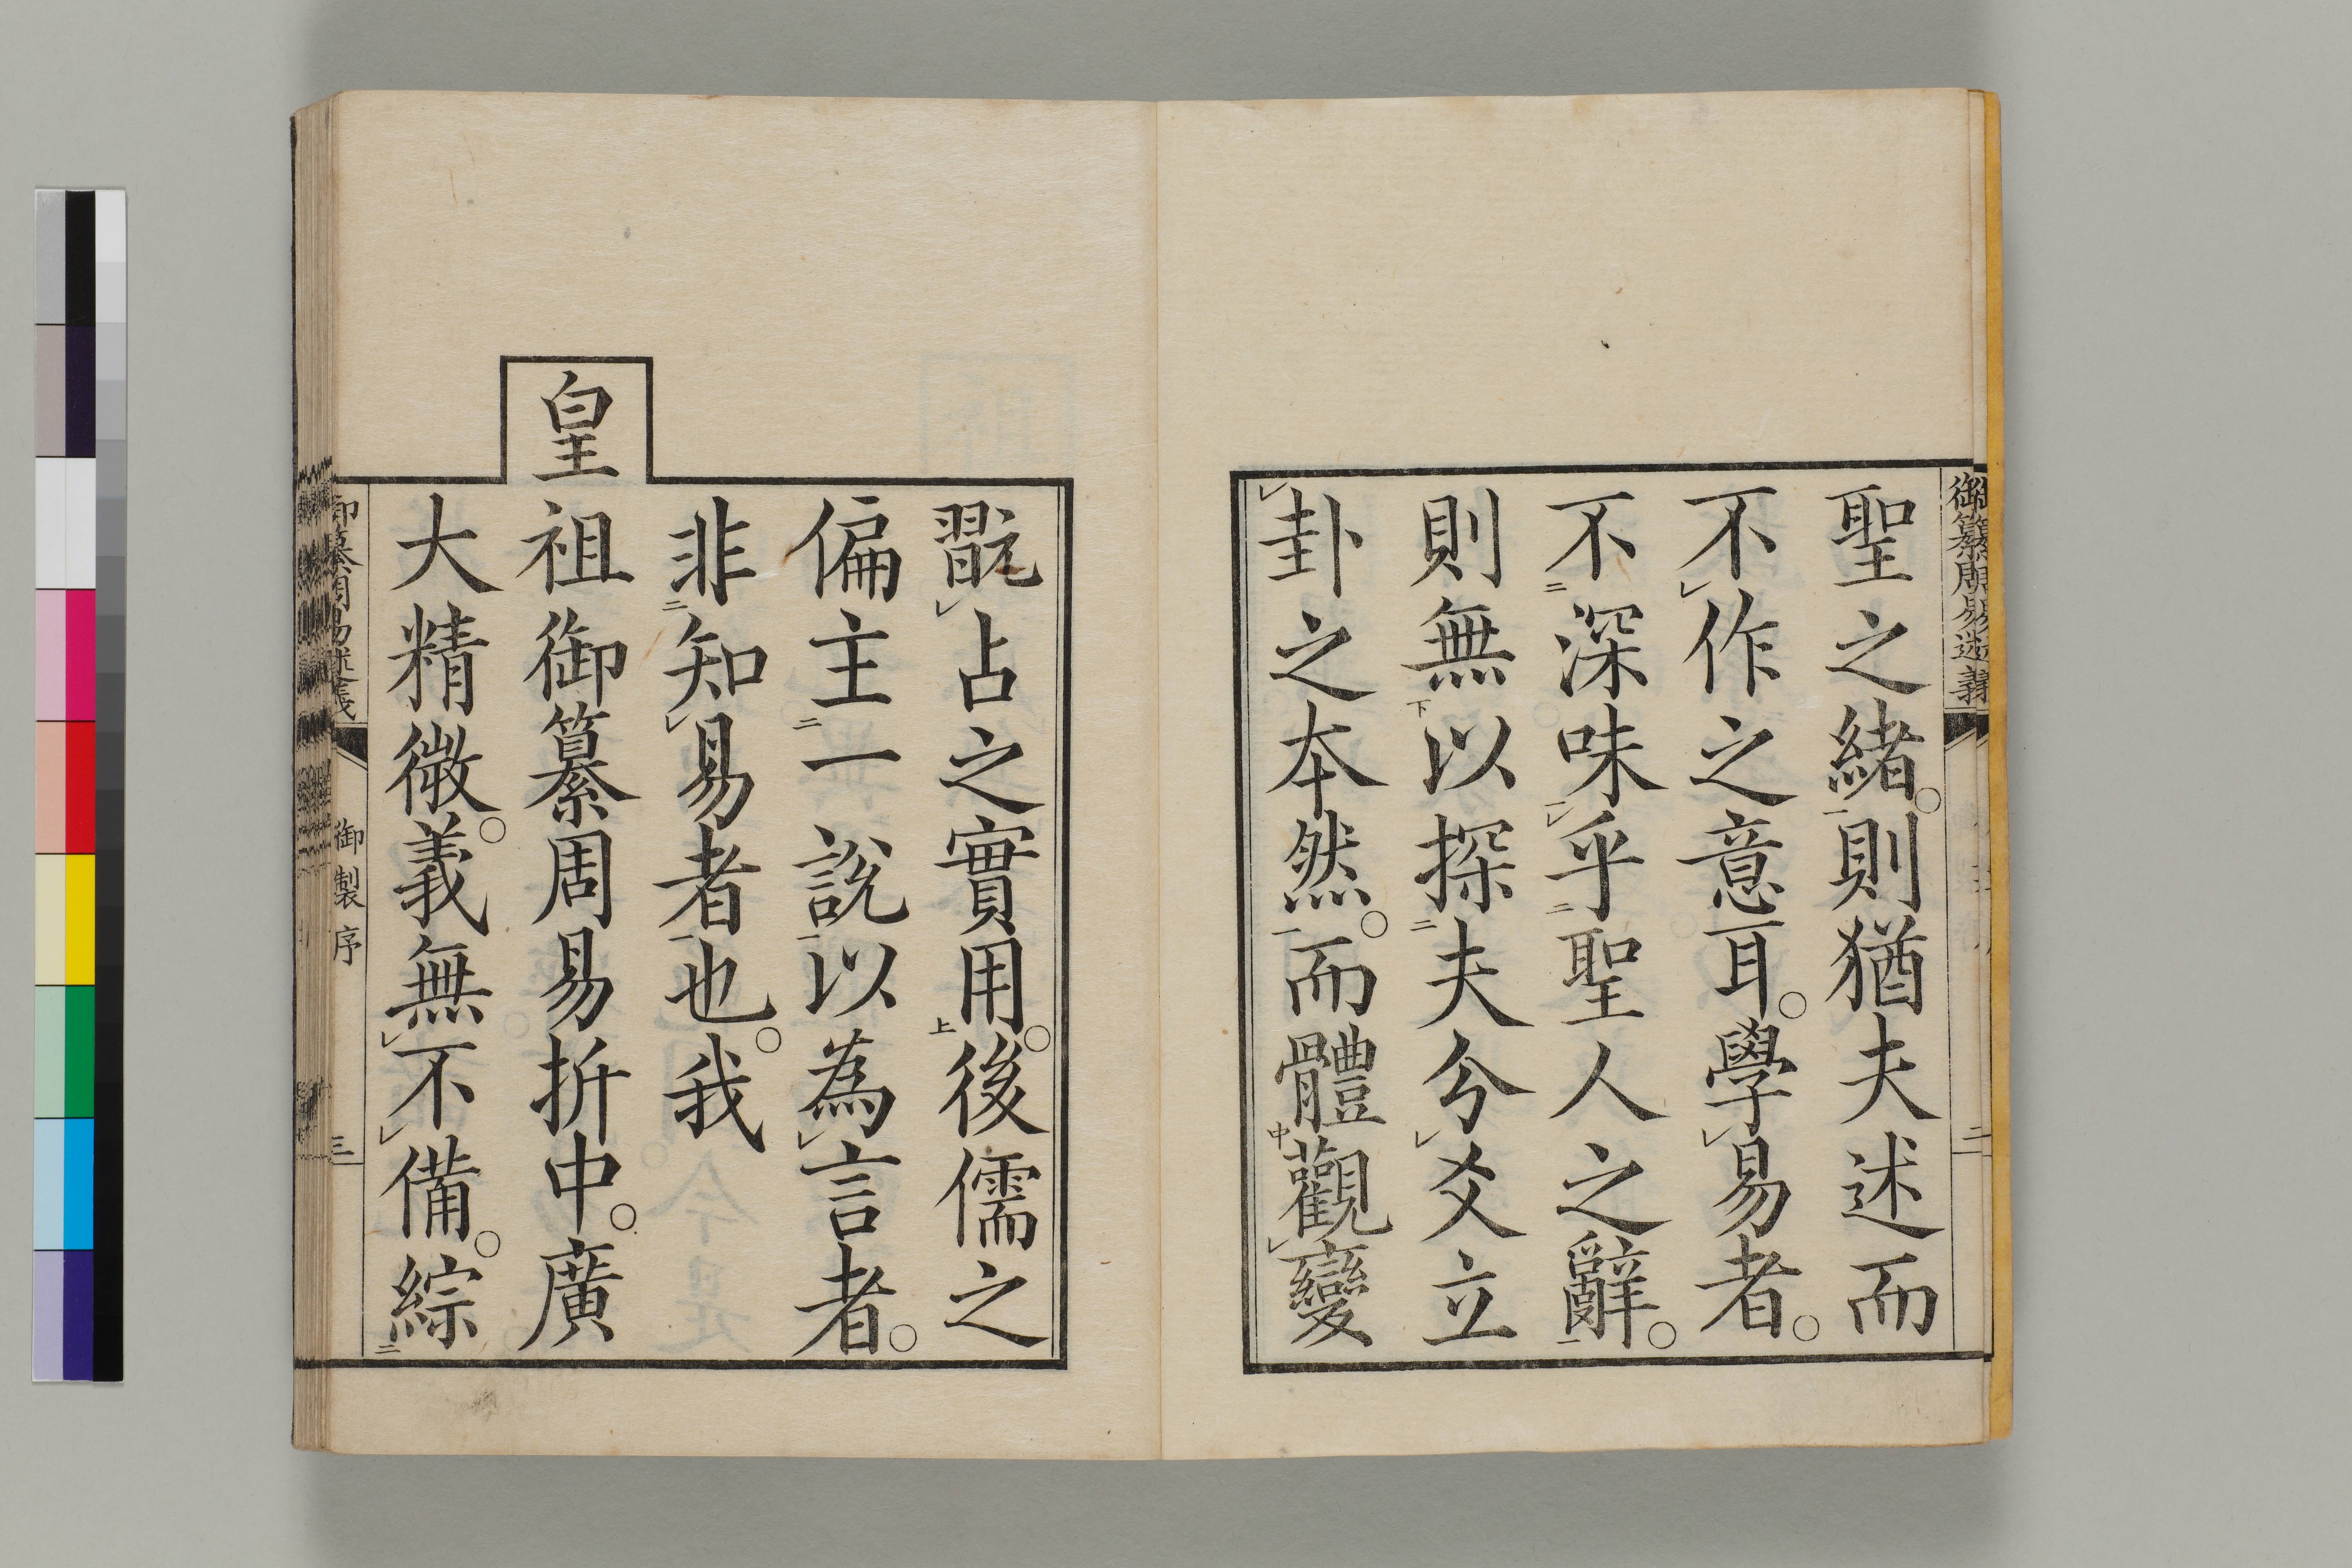 御纂周易述義 二
聖之緒。則猶夫述而
不作之意耳。學易者。
不深味乎聖人之辭。
則無以探夫分爻立
卦之本然。而體觀變
翫占之實用。後儒之
偏主一說以為言者。
非知易者也。我
皇祖御纂周易折中。廣
大精微。義無不備。綜
御纂周易述義 御製序 三